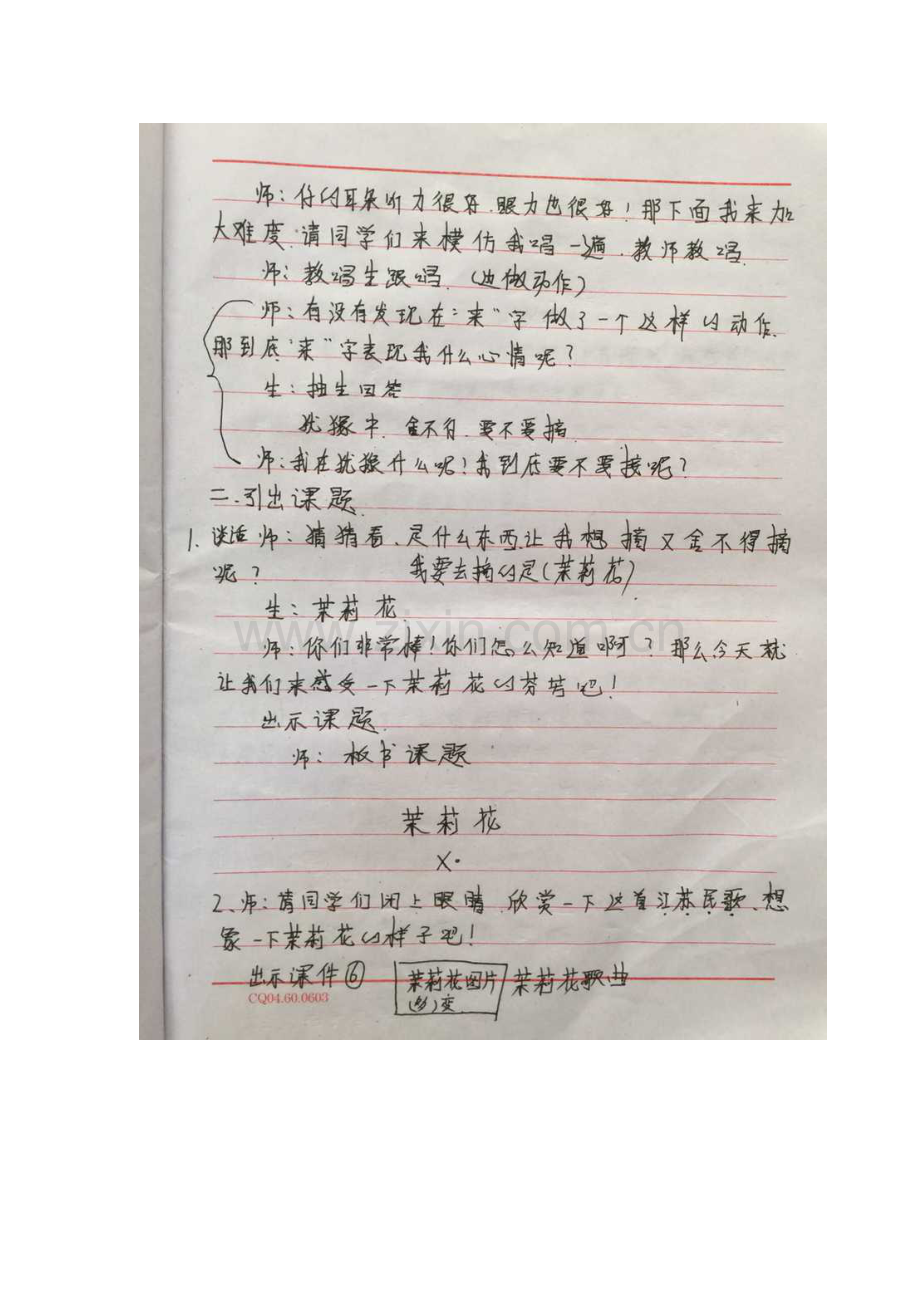 师：你的耳朵听力很好.眼力也很好！那下面我来加
大难度.请同学们来模仿我唱一遍.教师教唱.
师：教唱生跟唱.（边做动作）
师：有没有发现在“来”字做了一个这样的动作.
那到底“来”字表现我什么心情呢？
生：抽生回答
犹豫中.舍不得.要不要摘.
师：我在犹豫什么呢！我到底要不要摘呢？
二.引出课题.
1.谈话 师：猜猜看、是什么东西让我想摘又舍不得摘
呢？ 我要去摘的是（茉莉花）
生：茉莉花.
师：你们非常棒！你们怎么知道啊？那么今天就
让我们来感受一下茉莉花的芬芳吧！
出示课题.
师：板书课题
茉莉花
X·
2、师：请同学们闭上眼睛.欣赏一下这首江苏民歌、想
象一下茉莉花的样子吧！
出示课件⑥ 茉莉花图片 茉莉花歌曲
变
CQ04.60.0603
www.zixin.com.cn